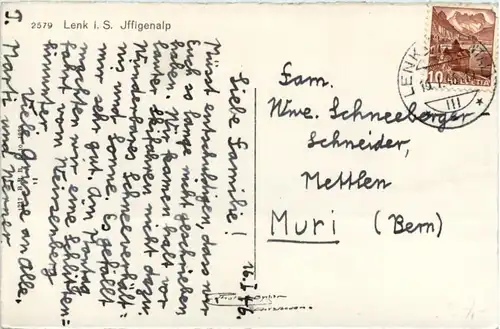 2579 Lenk i. S. Jffigenalp
16.I.46.
Liebe Familie!
Müsst entschuldigen, dass wir
Euch so lange nicht geschrieben
haben. Wir kamen halt vor
lauter Skifahren nicht dazu.
Wunderbares Schneeverhält=
nis und Sonne. Es gefällt
uns sehr gut. Am Montag
machten wir eine Schlitten=
fahrt von
hinunter.
Viele Grüsse an Alle.
J. Marti und Werner
Fam.
Wwe. Schneeberger-
Schneider,
Mettlen
Muri (Bern)
LENK
III
10